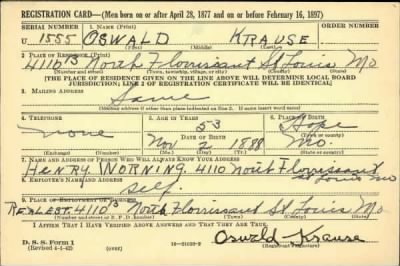 REGISTRATION CARD—(Men born on or after April 28, 1877 and on or before February 16, 1897)
SERIAL NUMBER 1. NAME (Print) ORDER NUMBER
U 1555 OSWALD KRAUSE
(First) (Middle) (Last)
2. PLACE OF RESIDENCE (Print)
4110 North Florrissant St Louis Mo
(Number and street) (Town, township, village, or city) (County) (State)
[THE PLACE OF RESIDENCE GIVEN ON THE LINE ABOVE WILL DETERMINE LOCAL BOARD
JURISDICTION; LINE 2 OF REGISTRATION CERTIFICATE WILL BE IDENTICAL]
3. MAILING ADDRESS
Same
[Mailing address if other than place indicated on line 2. If same insert word same]
4. TELEPHONE 5. AGE IN YEARS 6. PLACE OF BIRTH
none 53 Hope
DATE OF BIRTH (Town or county)
Nov 2 1888 Mo.
(Mo.) (Day) (Yr.) (State or country)
7. NAME AND ADDRESS OF PERSON WHO WILL ALWAYS KNOW YOUR ADDRESS
HENRY WORNING. 4110 North Florissant
St Louis Mo
8. EMPLOYER'S NAME AND ADDRESS
Self.
9. PLACE OF EMPLOYMENT OR BUSINESS
4110 North Florrissant St Louis Mo
(Number and street or R. F. D. number) (Town) (County) (State)
I AFFIRM THAT I HAVE VERIFIED ABOVE ANSWERS AND THAT THEY ARE TRUE.
D. S. S. Form 1 Oswald Krause
(Revised 4-1-42) (over) 16—21630-2 (Registrant's signature)